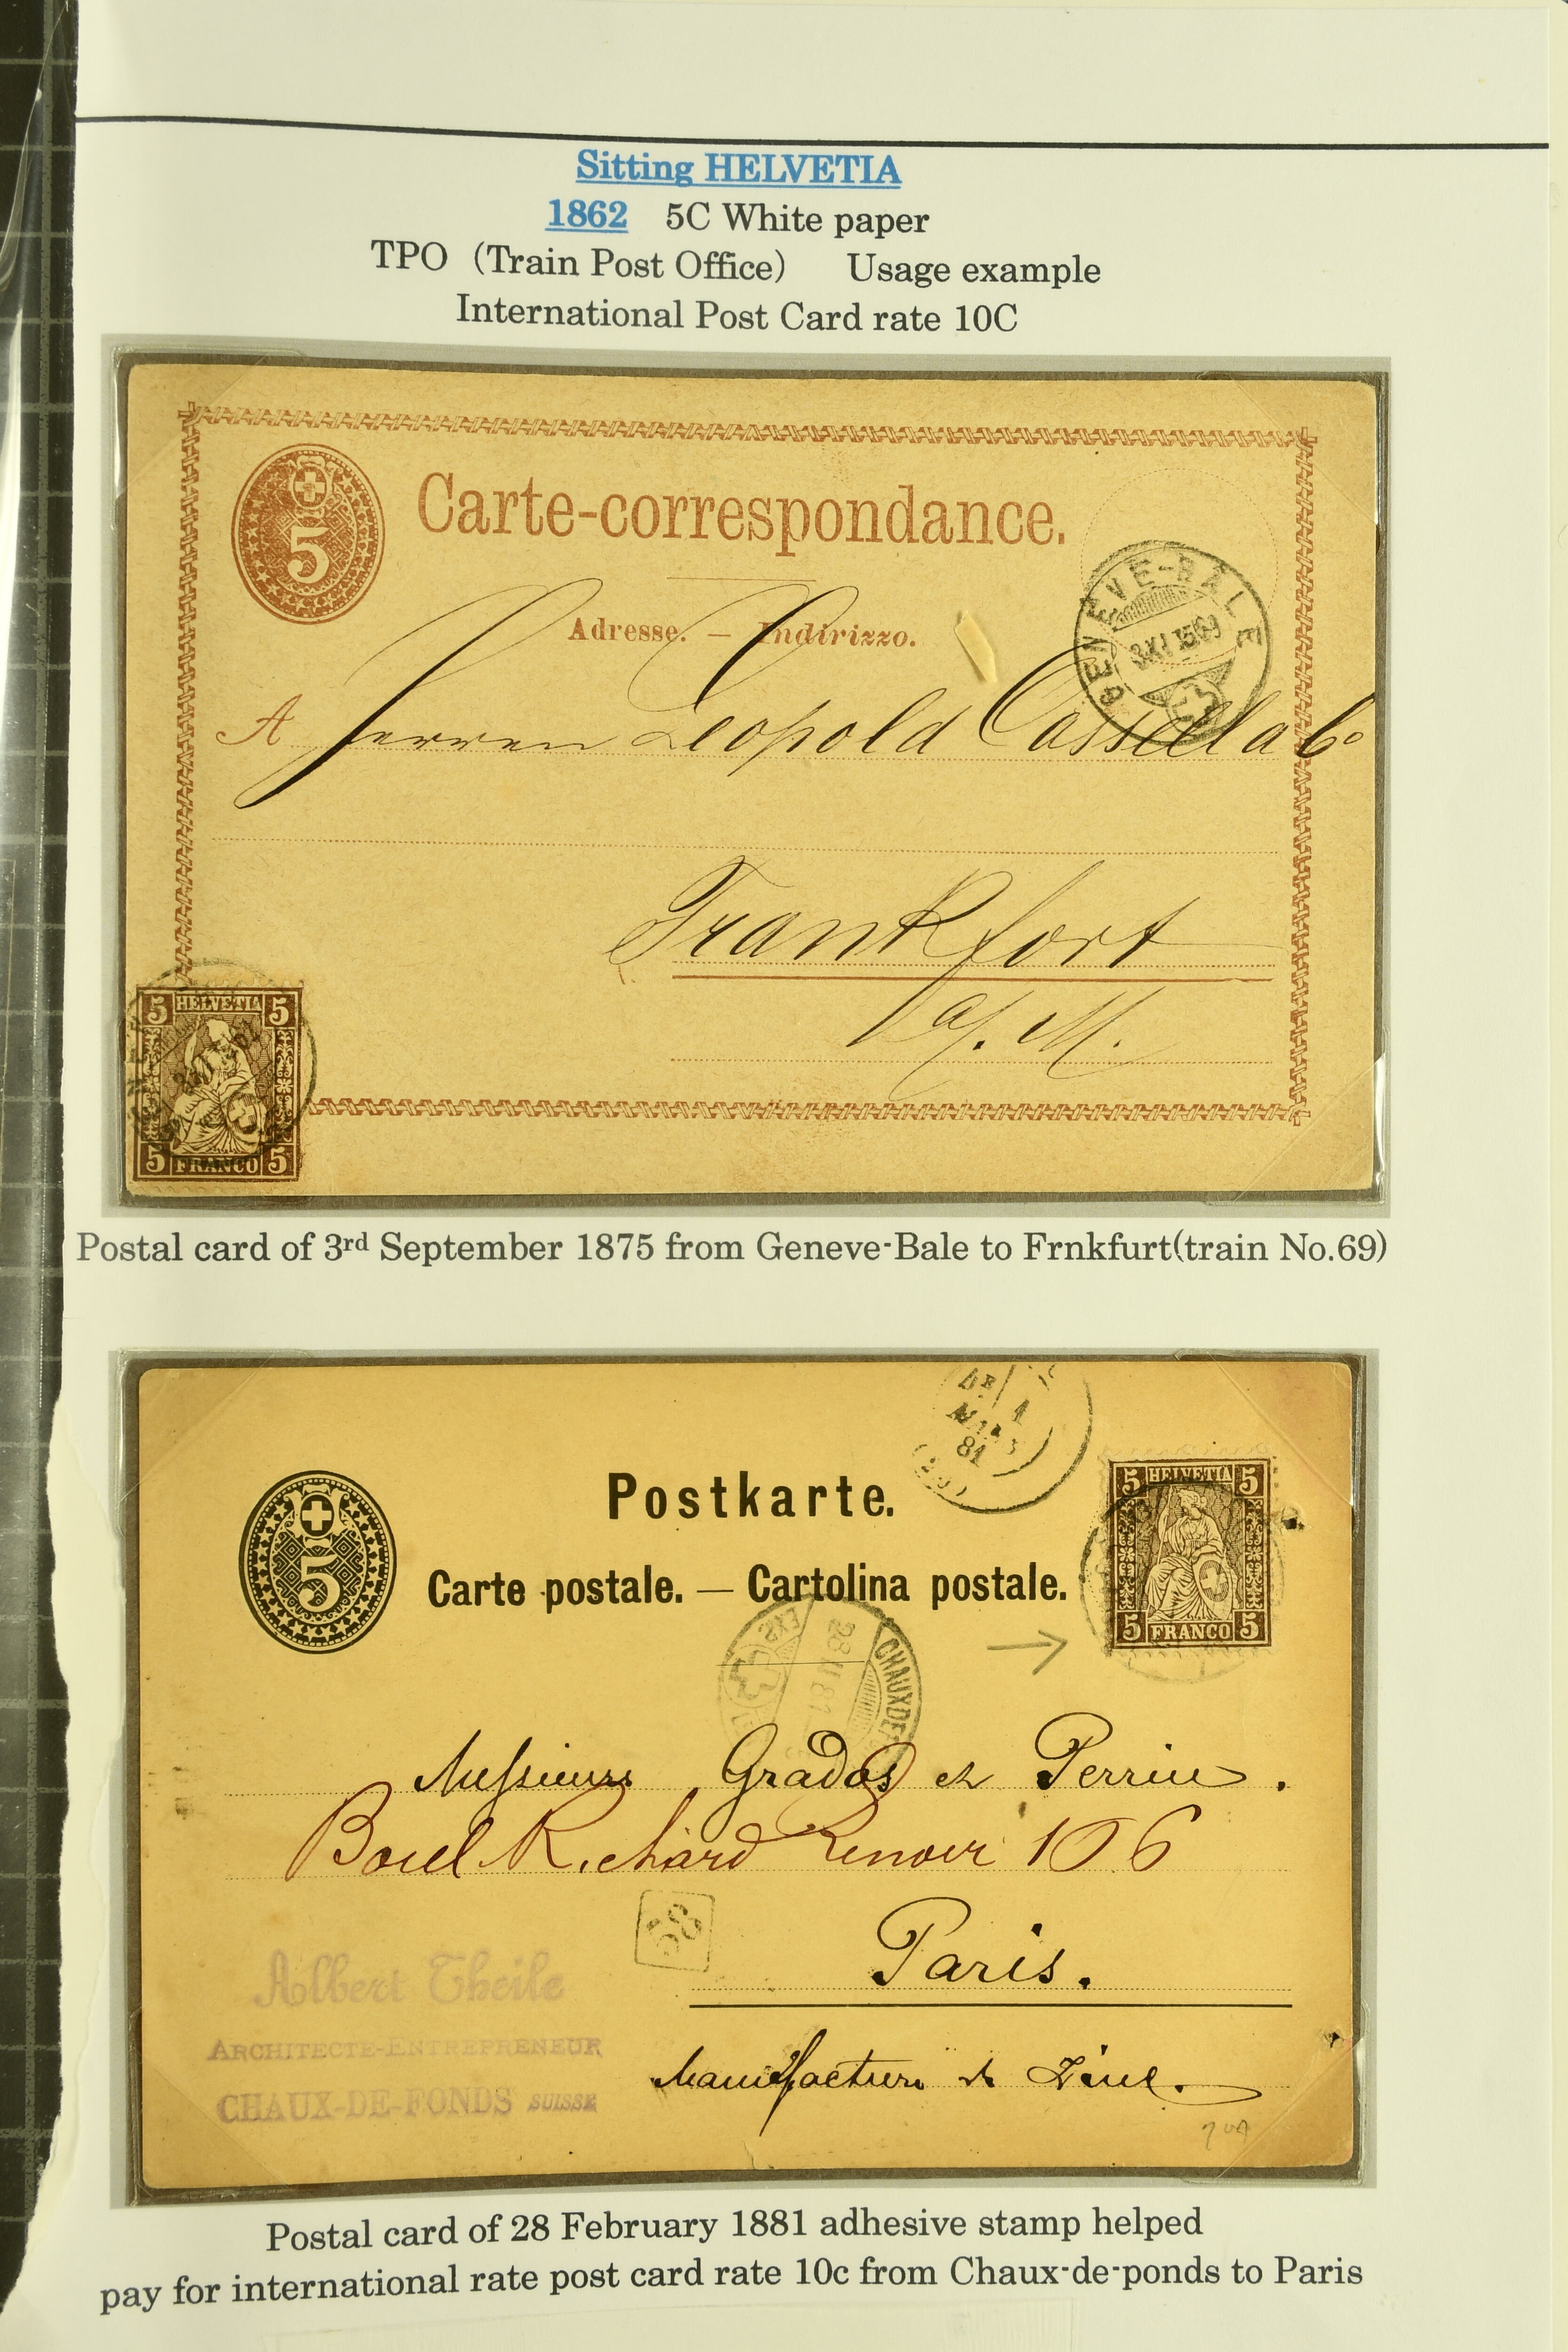 Sitting HELVETIA
1862 5C White paper
TPO (Train Post Office) Usage example
International Post Card rate 10C
5
Carte-correspondance.
Adresse. — Indirizzo.
GENÈVE-BÂLE
A Herren Leopold Cassella Co
Frankfort
a/. M.
5 HELVETIA 5
5 FRANCO 5
Postal card of 3rd September 1875 from Geneve-Bale to Frnkfurt(train No.69)
1
MARS
81
5
Postkarte.
Carte postale. — Cartolina postale.
5 HELVETIA 5
5 FRANCO 5
28 II 81
CHAUX DE
Messieurs Grados et Perrin.
Richard Lenoir 106
58
Paris.
Albert Theile
ARCHITECTE-ENTREPRENEUR
CHAUX-DE-FONDS SUISSE
Manufacture de Zinc.
Postal card of 28 February 1881 adhesive stamp helped
pay for international rate post card rate 10c from Chaux-de-ponds to Paris